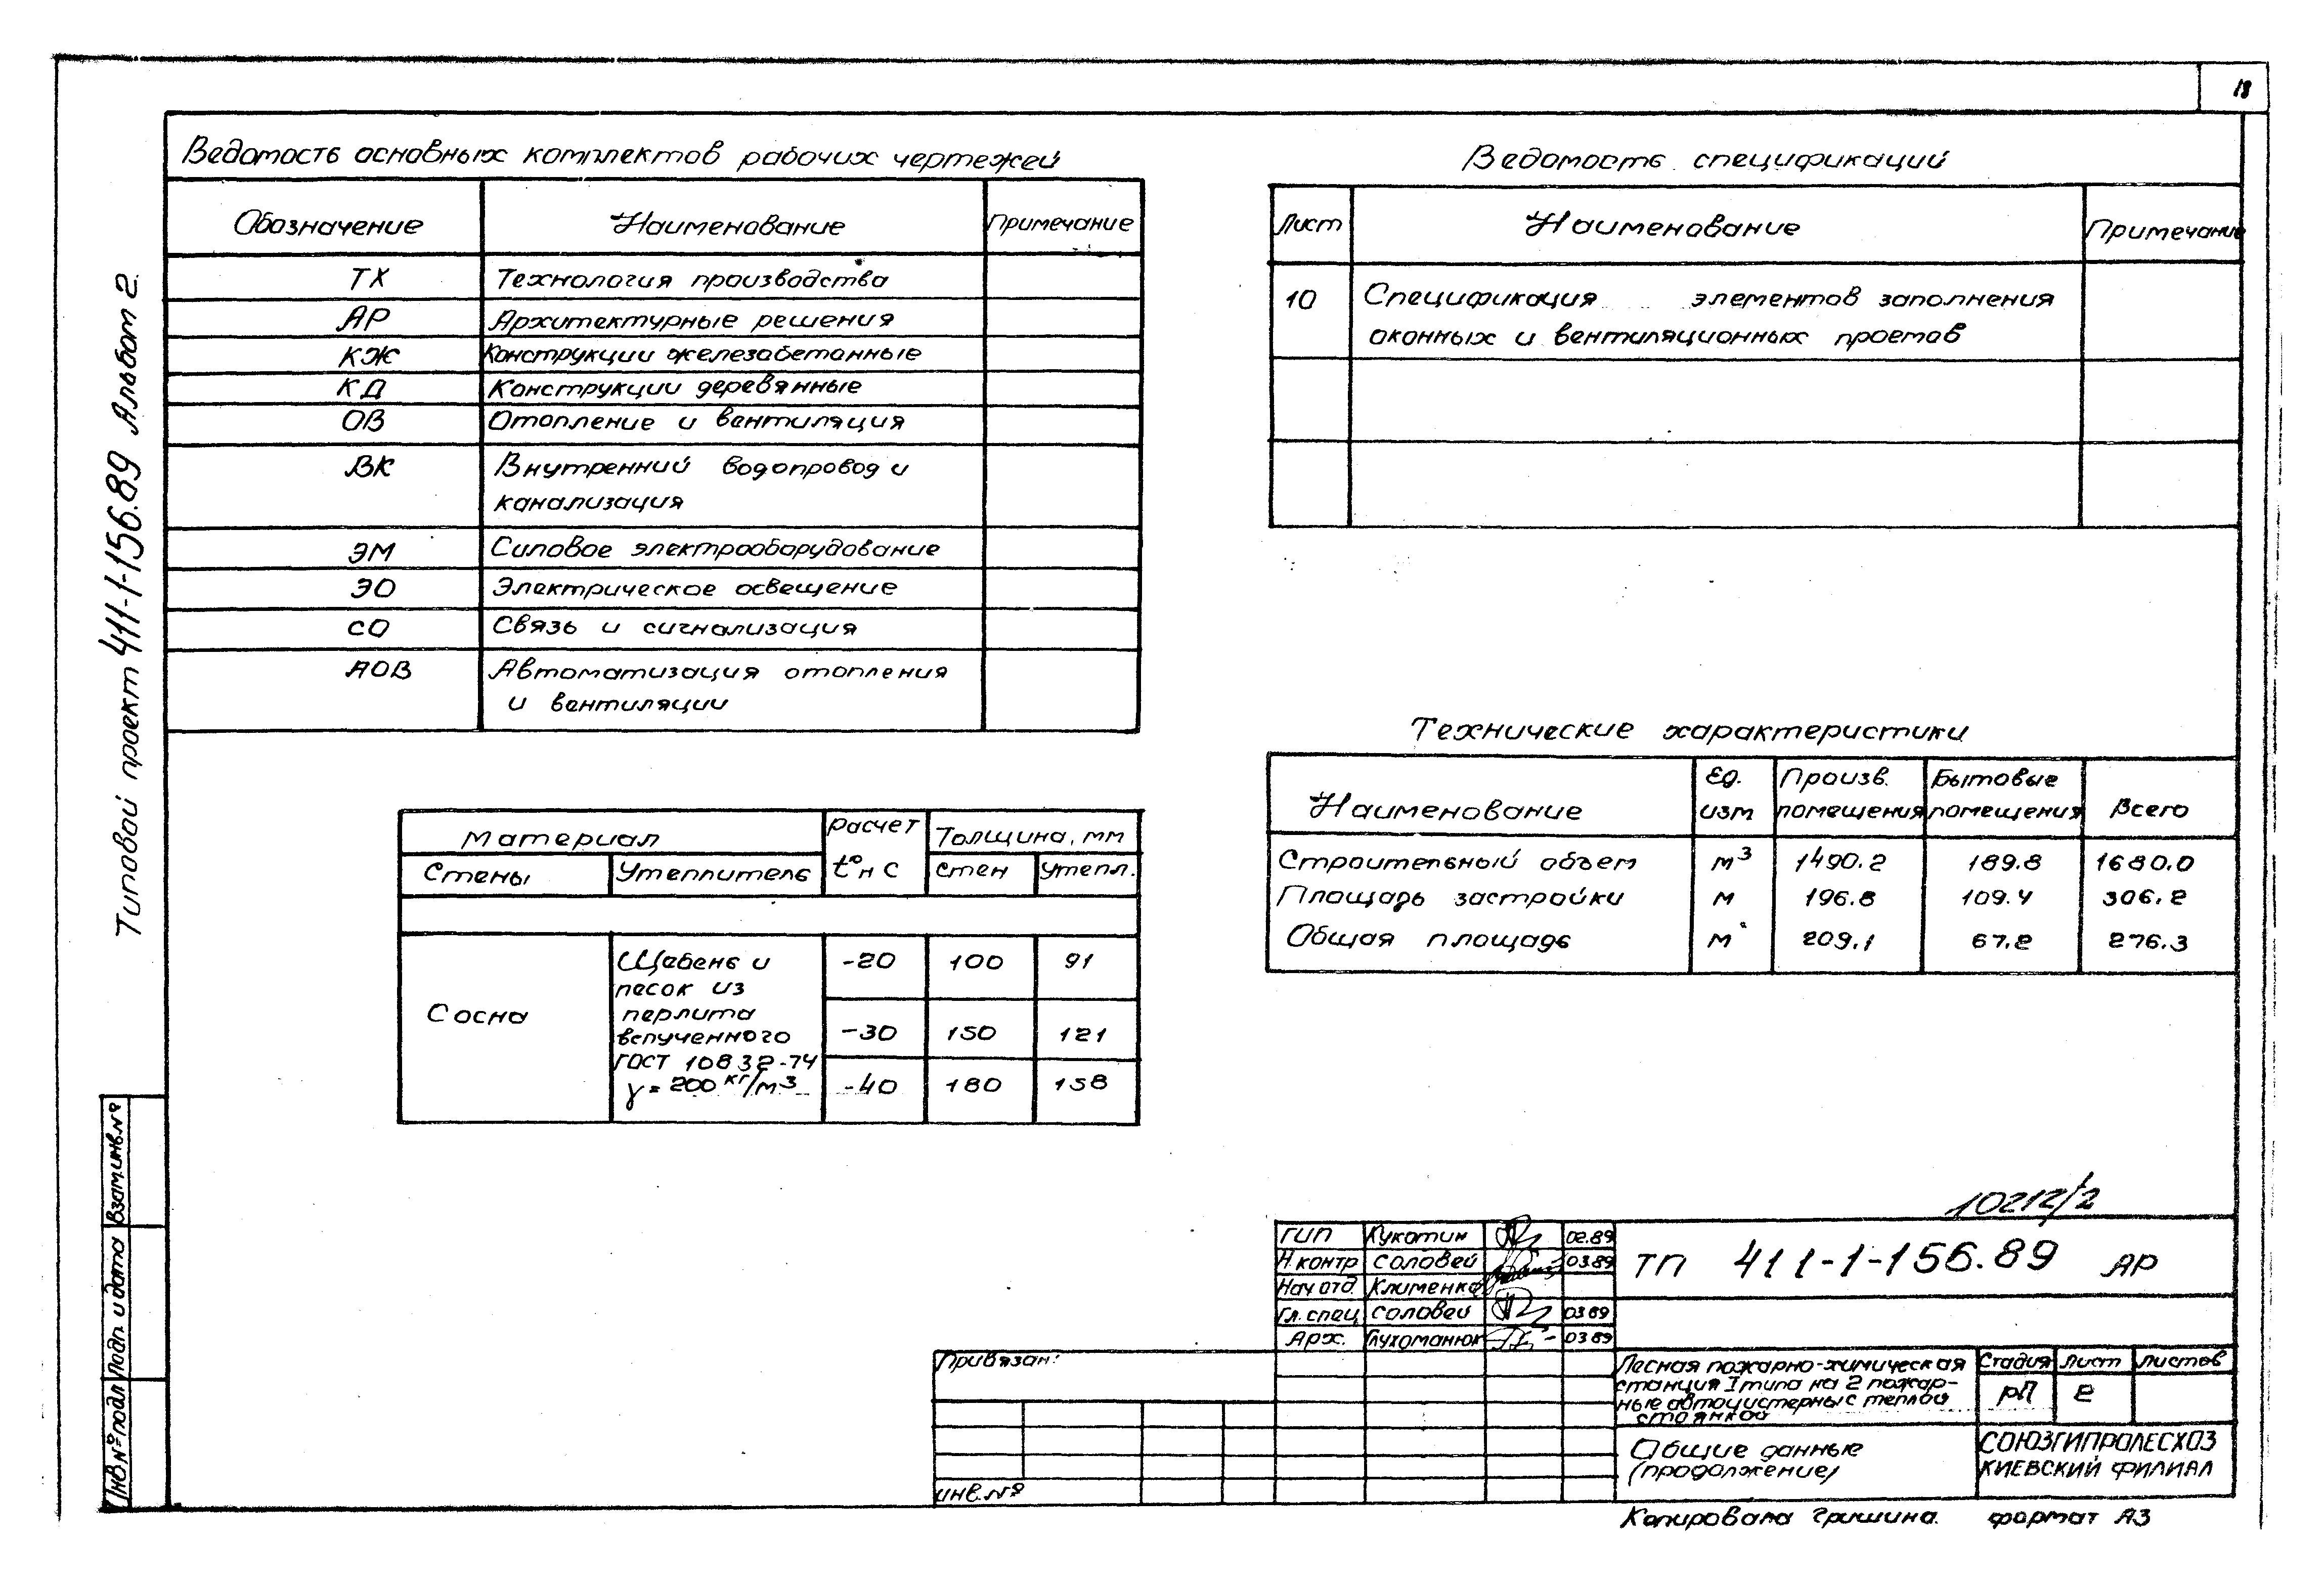 18
Типовой проект 411-1-156.89 Альбом 2.
Ведомость основных комплектов рабочих чертежей
Обозначение Наименование Примечание
ТХ Технология производства
АР Архитектурные решения
КЖ Конструкции железобетонные
КД Конструкции деревянные
ОВ Отопление и вентиляция
ВК Внутренний водопровод и
канализация
ЭМ Силовое электрооборудование
ЭО Электрическое освещение
СО Связь и сигнализация
АОВ Автоматизация отопления
и вентиляции
Ведомость спецификаций
Лист Наименование Примечание
10 Спецификация элементов заполнения
оконных и вентиляционных проемов
Материал Расчет Толщина, мм
Стены Утеплитель t°н С Стен Утепл.
Сосна
Щебень и
песок из
перлита
вспученного
ГОСТ 10832-74
γ = 200 кг/м3
-20 100 91
-30 150 121
-40 180 158
Технические характеристики
Наименование Ед. изм Произв. помещения Бытовые помещения Всего
Строительный объем м3 1490.2 189.8 1680.0
Площадь застройки м 196.8 109.4 306.2
Общая площадь м 209.1 67.2 276.3
10212/2
ГИП Кукотин 02.89
Н.контр Соловей 03.89
Нач отд. Клименко
Гл. спец Соловей 03 89
Арх. Глухоманюк 03 89
ТП 411-1-156.89 АР
Привязан:
инв.№
Лесная пожарно-химическая
станция I типа на 2 пожар-
ные автоцистерны с теплой
стоянкой
Стадия Лист Листов
РП 2
Общие данные
(продолжение)
СОЮЗГИПРОЛЕСХОЗ
КИЕВСКИЙ ФИЛИАЛ
Копировала Гришина формат А3
Взам.инв.№
Подп. и дата
Инв.№ подл